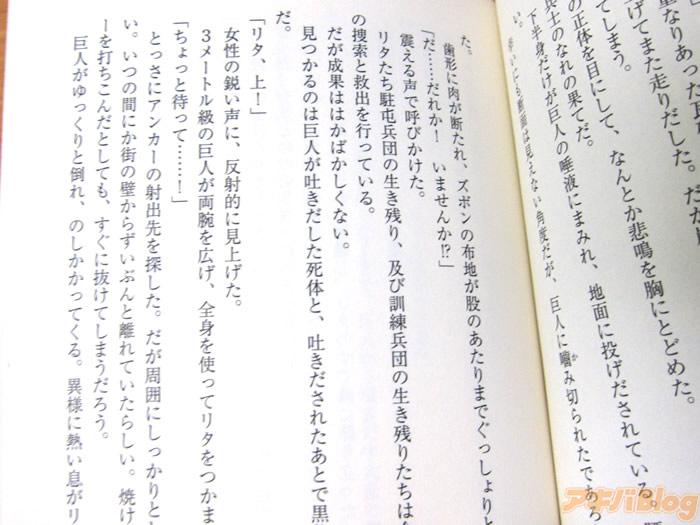 重なりあった兵
上げてまた走りだした。だが
の正体を目にして、なんとか悲鳴を胸にとどめた。
兵士のなれの果てだ。
下半身だけが巨人の唾液にまみれ、地面に投げだされている。
い。幸いにも断面は見えない角度だが、巨人に嚙み切られたであろ
た。
歯形に肉が断たれ、ズボンの布地が股のあたりまでぐっしょりと
「だ……だれか！　いませんか!?」
震える声で呼びかけた。
リタたち駐屯兵団の生き残り、及び訓練兵団の生き残りたちは
の捜索と救出を行っている。
だが成果ははかばかしくない。
見つかるのは巨人が吐きだした死体と、吐きだされたあとで黒
だ。
「リタ、上！」
女性の鋭い声に、反射的に見上げた。
３メートル級の巨人が両腕を広げ、全身を使ってリタをつかま
「ちょっと待って……！」
とっさにアンカーの射出先を探した。だが周囲にしっかりとし
い。いつの間にか街の壁からずいぶんと離れていたらしい。焼け
ーを打ちこんだとしても、すぐに抜けてしまうだろう。
巨人がゆっくりと倒れ、のしかかってくる。異様に熱い息がリ
アキバBlog